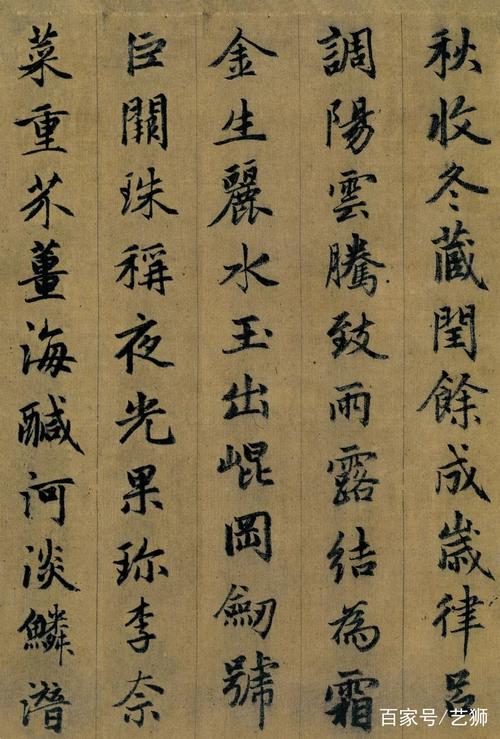 秋收冬藏閏餘成歲律呂
調陽雲騰致雨露結為霜
金生麗水玉出崐岡劒號
巨闕珠稱夜光果珎李柰
菜重芥薑海醎河淡鱗潛
百家号/艺狮